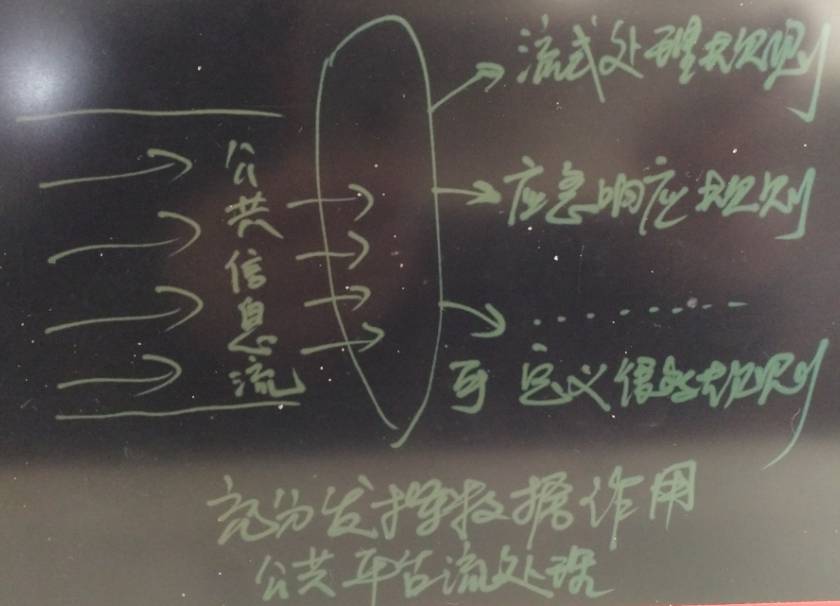 流式处理规则
公共信息流
应急响应规则
.........
可定义 规则
充分发挥数据作用
公共平台流处理